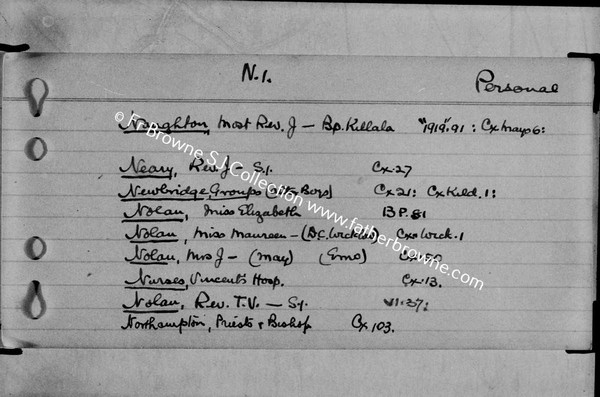 N.1.
Personal
Naughton, Most Rev. J — Bp. Killala "1919". 91 : Cx Mayo 6 :
Neary, Rev. J — S.J. Cx. 27
Newbridge, Groups Boys) Cx 21 : Cx Kild. 1 :
Nolan, Miss Elizabeth B P. 81
Nolan, Miss Maureen — (B.C. Wicklow) Cxs Wick. 1
Nolan, Mrs J — (May) (Emo)
Nurses, Vincents Hosp. Cx. 13.
Nolan, Rev. T.V. — S.J. VI. 37 :
Northampton, Priests & Bishop Cx 103.
© Fr Browne S.J. Collection www.fatherbrowne.com